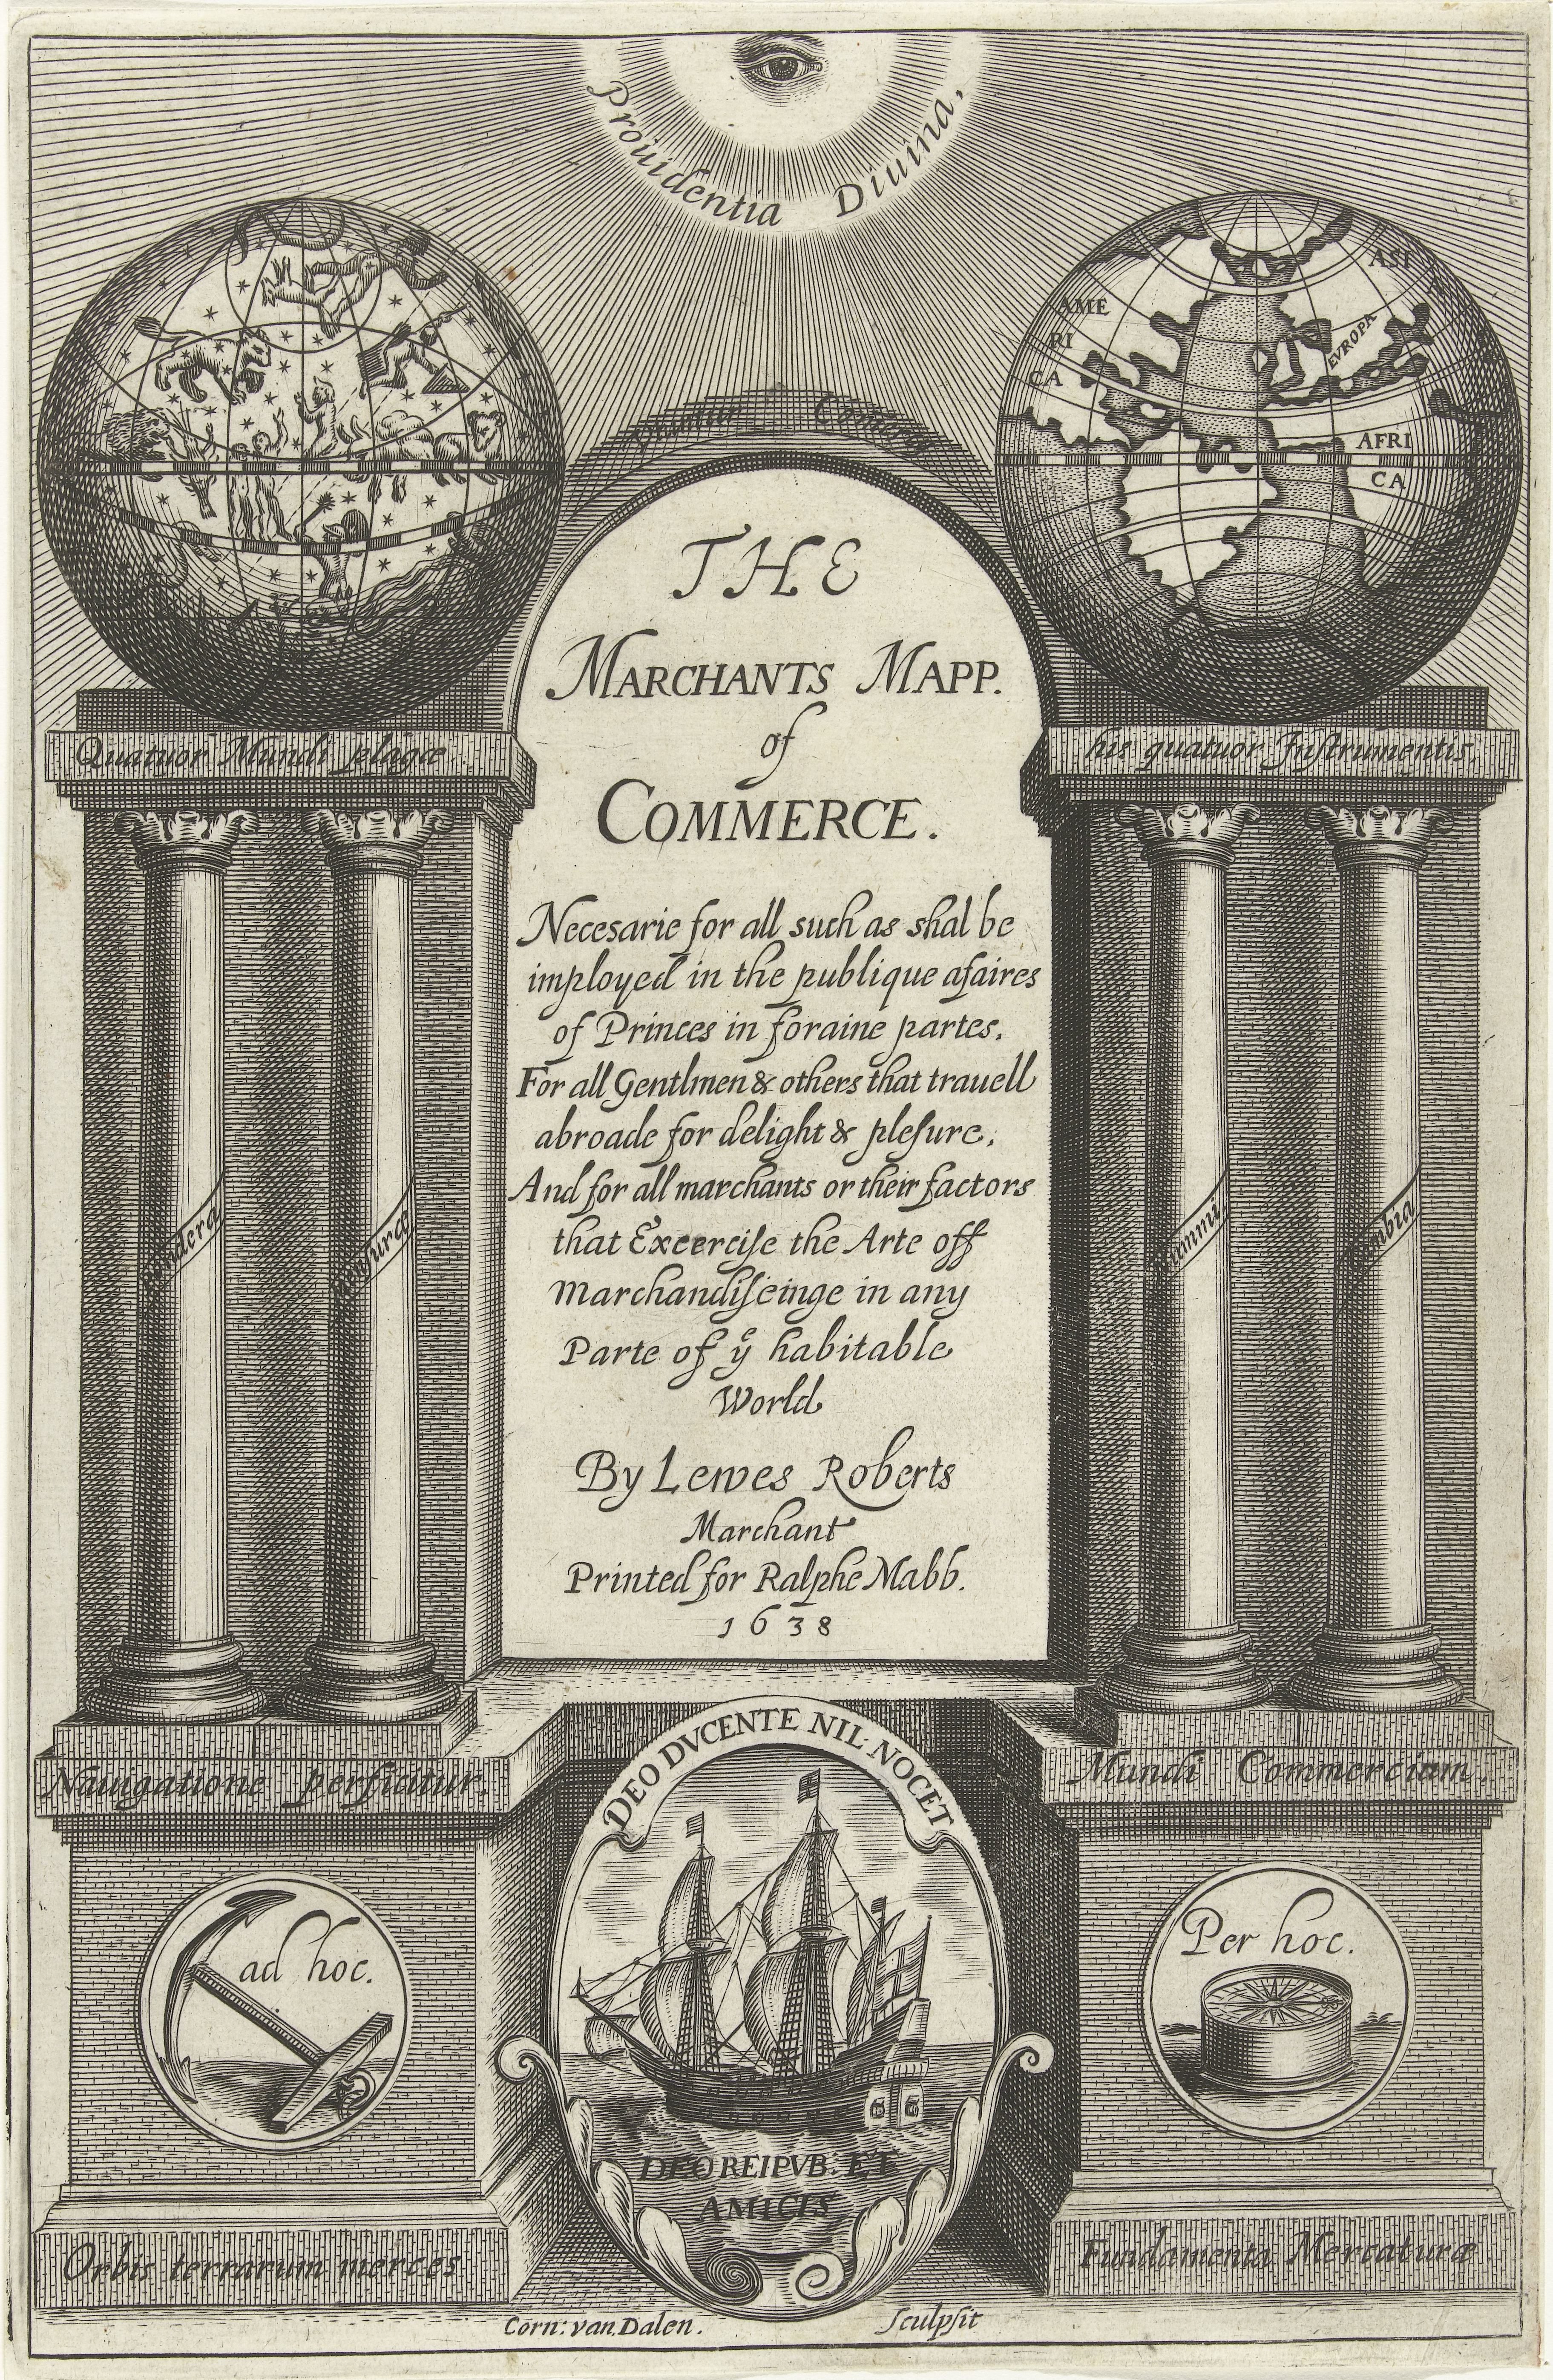 Prouidentia Diuina,
AME
RI
CA
ASI
EVROPA
AFRI
CA
THE
MARCHANTS MAPP.
of
COMMERCE.
Quatuor Mundi plagæ
his quatuor Inſtrumentis.
Necesarie for all such as shal be
imployed in the publique afaires
of Princes in foraine partes,
For all Gentlmen & others that trauell
abroade for delight & pleſure,
And for all marchants or their factors
that Excerciſe the Arte off
Marchandiſeinge in any
Parte of yͤ habitable
World
By Lewes Roberts
Marchant
Printed for Ralphe Mabb.
1638
Nauigatione perficitur.
Mundi Commercium.
DEO DVCENTE NIL NOCET
ad hoc.
Per hoc.
DEO REIPVB: ET
AMICIS
Orbis terrarum merces
Fundamenta Mercaturæ
Corn: van Dalen. Sculpſit